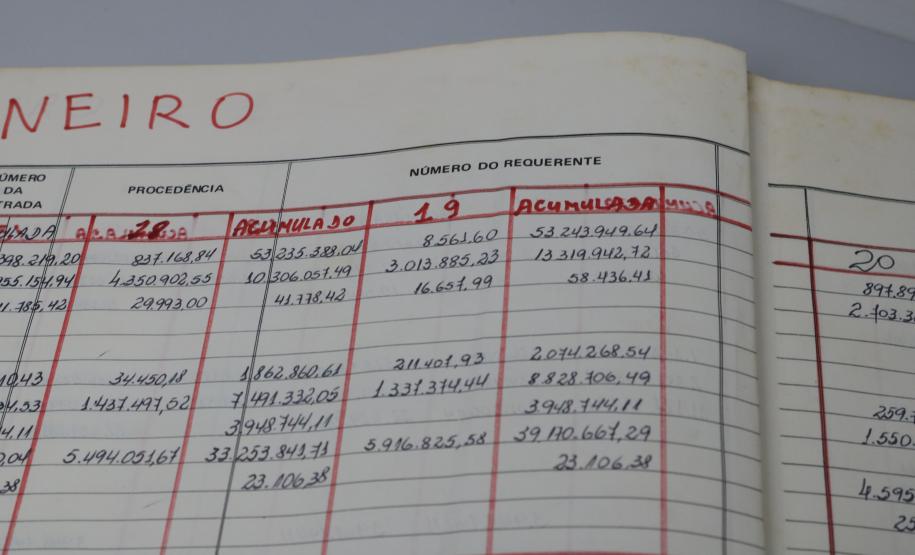 NEIRO
NÚMERO DO REQUERENTE
ÚMERO
DA
TRADA
PROCEDÊNCIA
ACUMULADO 19 ACUMULADA
20
398.219,20 837.168,84 53.235.388,04 8.561.60 53.243.949.64
897.89
955.154,94 4.350.902,55 10.306.057,49 3.013.885,23 13.319.942,72
2.703.3
11.785,42 29.993,00 41.778,42 16.657,99 58.436,41
10,43 34.450,18 1.862.860.61 211.407,93 2.074.268.54
94,53 1.437.497,52 7.491.332,05 1.337.374,44 8.828.706,49
259.7
44,11 3.948.744,11 3.948.744,11
1.550.
0,04 5.494.051,67 33.253.841,71 5.916.825,58 39.170.667,29
38 23.106,38 23.106,38
4.595
25